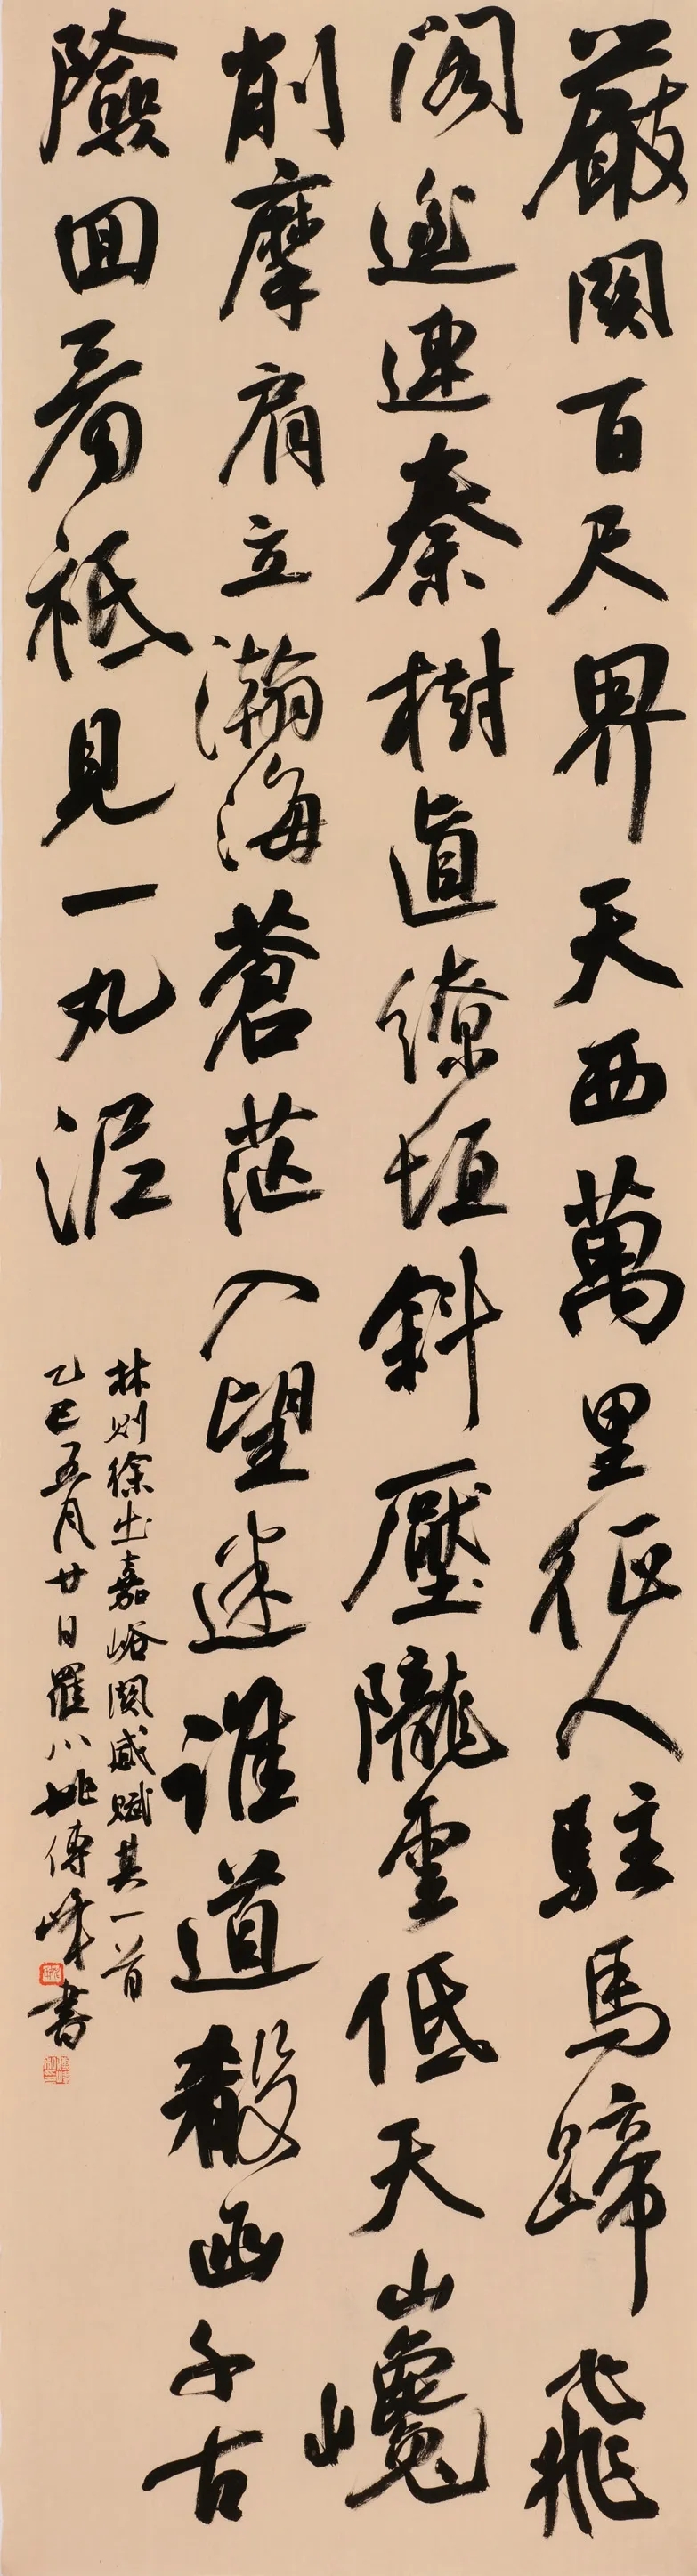 嚴關百尺界天西萬里征人駐馬蹄飛
閣遙連秦樹直繚垣斜壓隴雲低天山巉
削摩肩立瀚海蒼茫入望迷誰道殽函千古
險回看祇見一丸泥
林則徐出嘉峪關感賦其一首
乙巳五月廿日羅川姚傳峰書